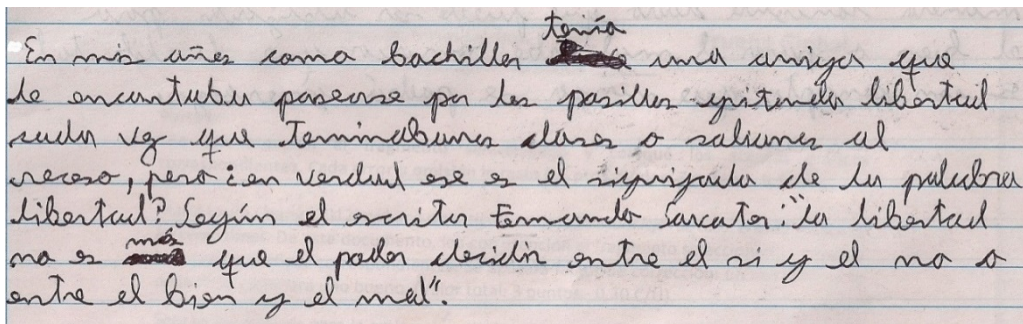 En mis años como bachiller tenía una amiga que
le encantaba pasearse por los pasillos gritando libertad
cada vez que terminabamos clases o saliamos al
receso, pero ¿en verdad ese es el significado de la palabra
libertad? Según el escritor Fernando Savater: "la libertad
no es más que el poder decidir entre el si y el no o
entre el bien y el mal".